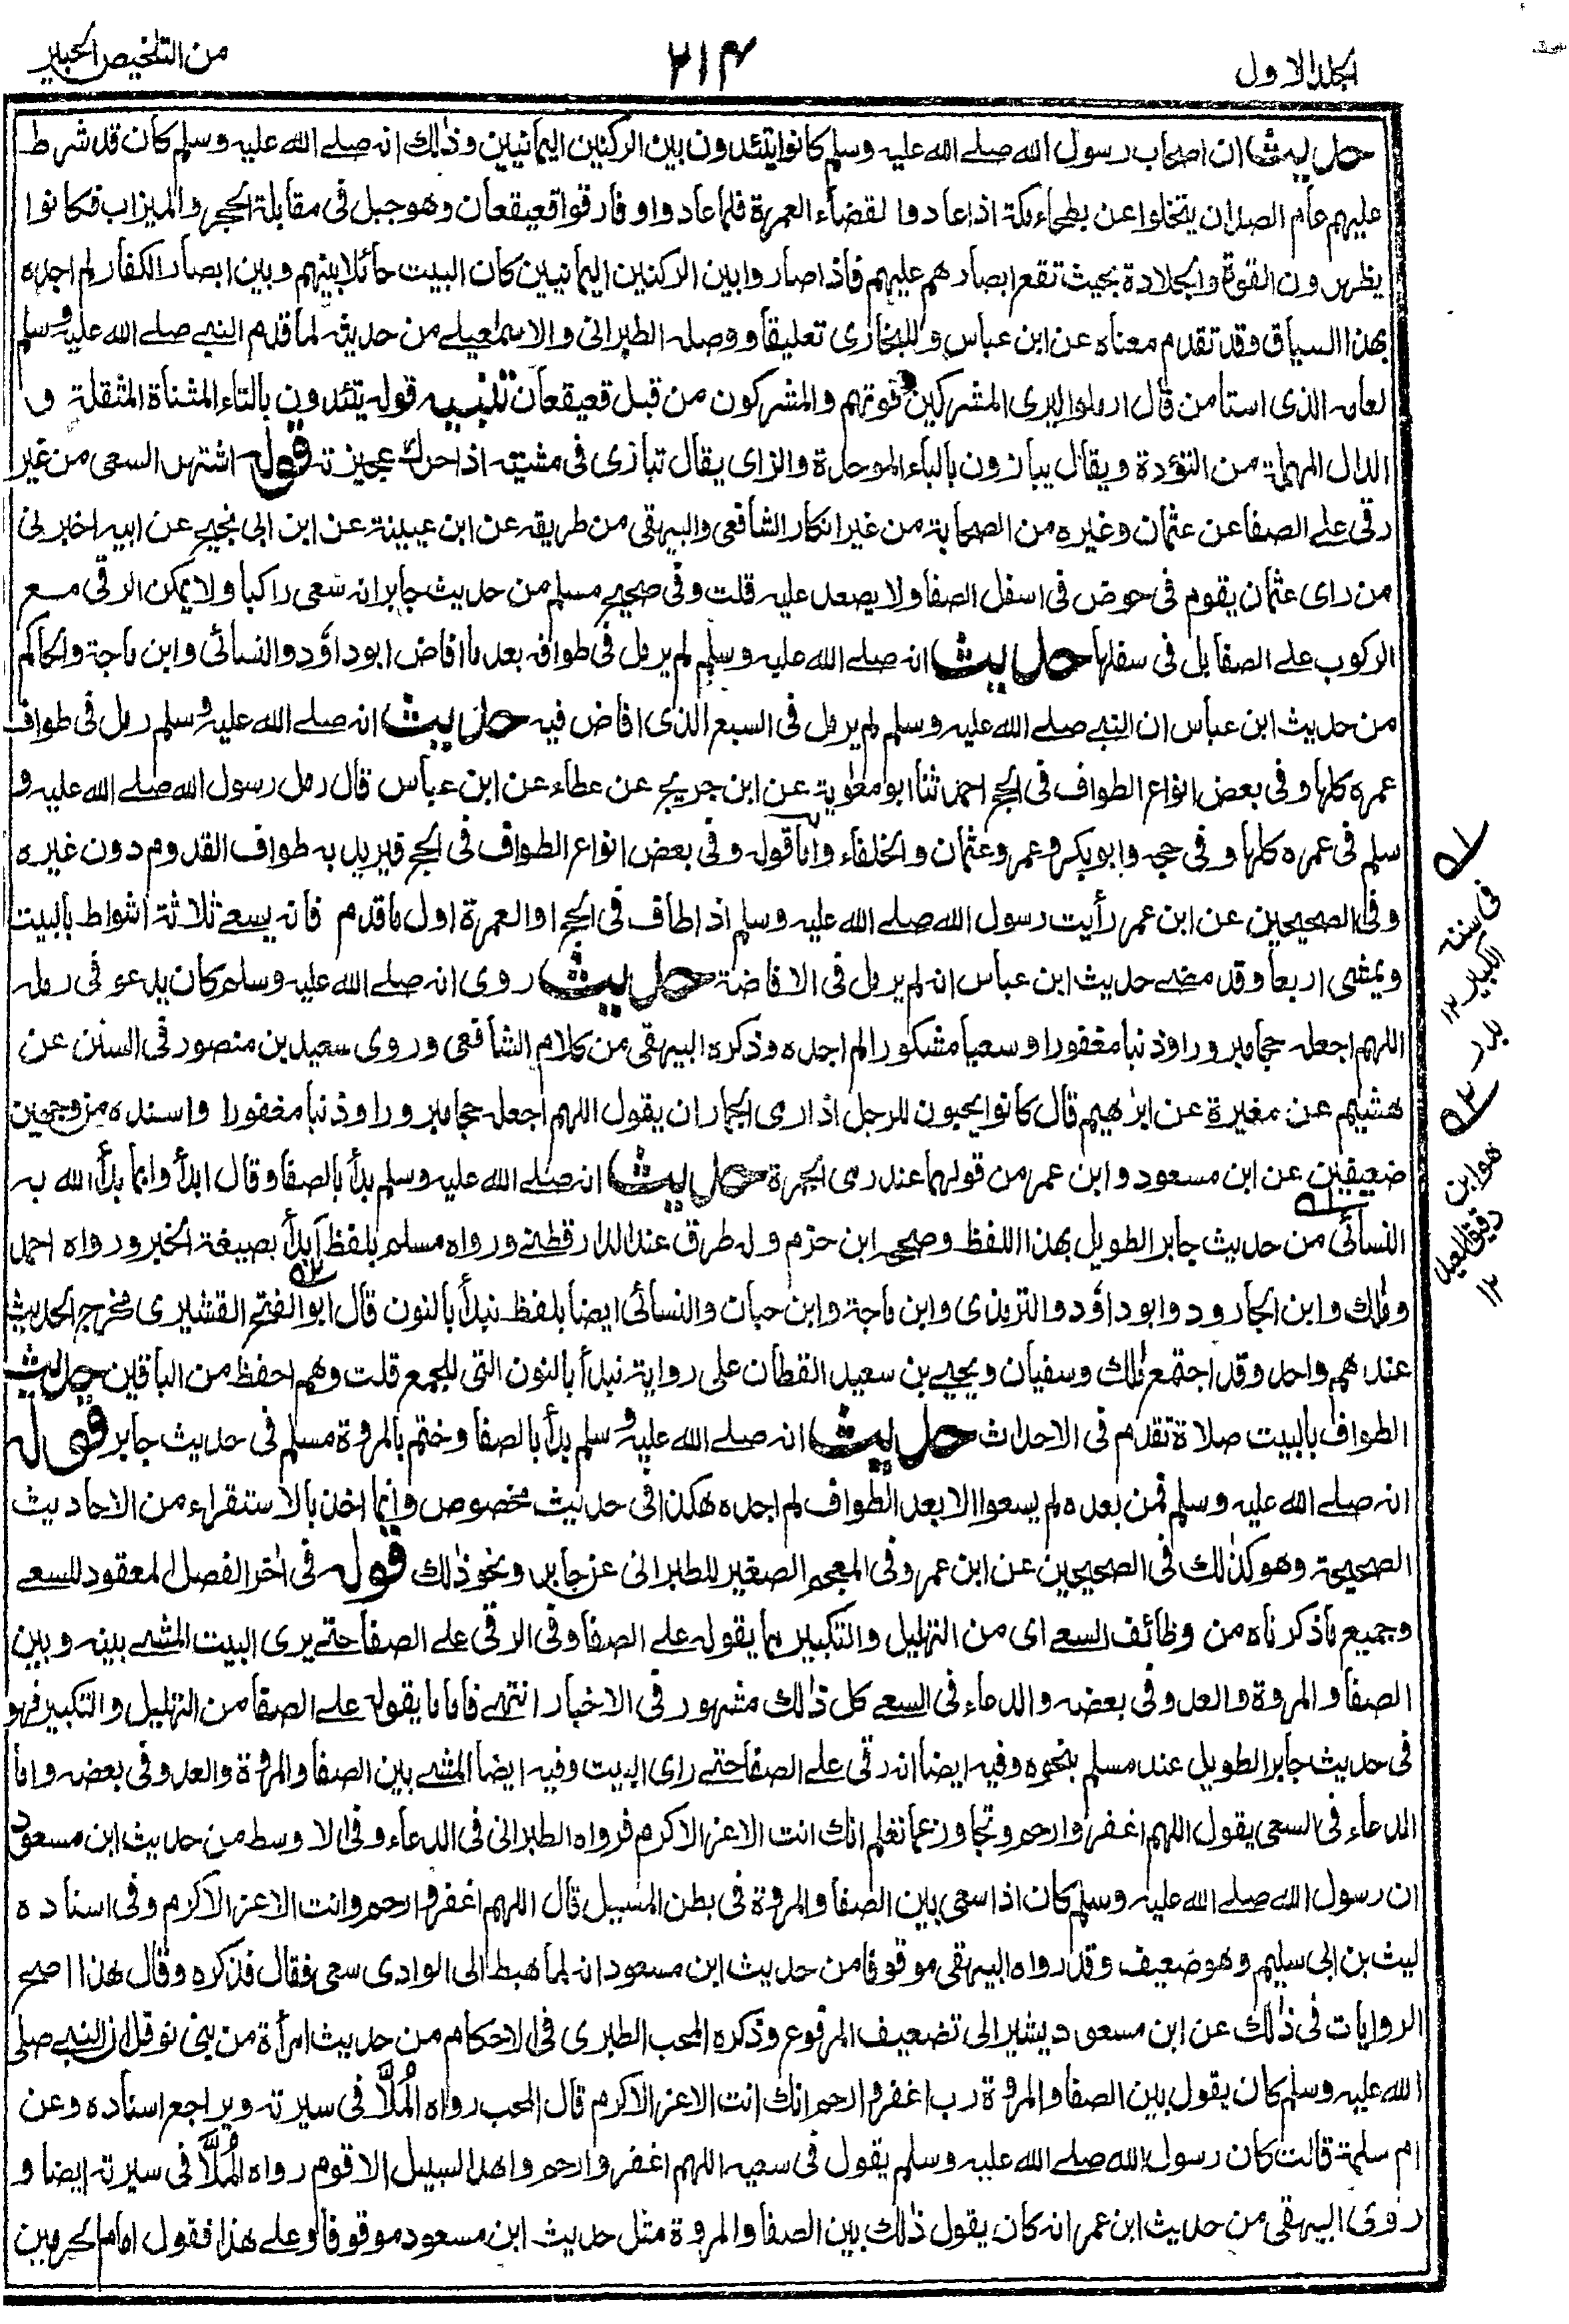 الجلد الاول
٢١٤
من التلخيص الحبير
حديث ان اصحاب رسول الله صلے الله عليه وسلم كانوا يتئدون بين الركنين اليمانيين وذلك انه صلے الله عليه وسلم كان قد شرط
عليهم عام الصد ان يتخلوا عن بطحاء مكة اذا عادوا لقضاء العمرة فلما عادوا وفارقوا قعيقعان وهو جبل فى مقابلة الحجر والميزاب فكانوا
يظهرون القوة والجلادة بحيث تقع ابصارهم عليهم فاذا صاروا بين الركنين اليمانيين كان البيت حائلا بينهم وبين ابصار الكفار لم اجده
بهذا السياق وقد تقدم معناه عن ابن عباس وللبخارى تعليقا ووصله الطبرانى والاسمٰعيلے من حديثه لما قدم النبے صلے الله عليه وسلم
لعامه الذى استامن قال ارملوا ليرى المشركين قوتهم والمشركون من قبل قعيقعان تنبيه قوله يتئدون بالتاء المثناة المثقلة و
الدال المهملة من التؤدة ويقال يبازون بالباء الموحدة والزاى يقال تبازى فى مشيته اذا حرك عجيزته قوله اشتهر السعى من غير
رقى علے الصفا عن عثمان وغيره من الصحابة من غير انكار الشافعى والبيهقى من طريقه عن ابن عيينة عن ابن ابى نجيح عن ابيه اخبرنى
من راى عثمان يقوم فى حوض فى اسفل الصفا ولا يصعد عليه قلت وفى صحيح مسلم من حديث جابر انه سعى راكبا ولا يمكن الرقى مع
الركوب علے الصفا بل فى سفلها حديث انه صلے الله عليه وسلم لم يرمل فى طوافه بعد ما افاض ابو داؤد والنسائى وابن ماجة والحاكم
من حديث ابن عباس ان النبے صلے الله عليه وسلم لم يرمل فى السبع الذى افاض فيه حديث انه صلے الله عليه وسلم رمل فى طواف
عمره كلها وفى بعض انواع الطواف فى الحج احمد ثنا ابو معٰوية عن ابن جريج عن عطاء عن ابن عباس قال رمل رسول الله صلے الله عليه و
سلم فى عمره كلها وفى حجه وابو بكر وعمر وعثمان والخلفاء واما قوله وفى بعض انواع الطواف فى الحج فيريد به طواف القدوم دون غيره
وفى الصحيحين عن ابن عمر رأيت رسول الله صلے الله عليه وسلم اذ اطاف فى الحج او العمرة اول ما قدم فانه يسعے ثلاثة اشواط بالبيت
ويمشى اربعا وقد مضے حديث ابن عباس انه لم يرمل فى الافاضة حديث روى انه صلے الله عليه وسلم كان يدعو فى رمله
اللهم اجعله حجا مبرورا وذنبا مغفورا وسعيا مشكورا لم اجده وذكره البيهقى من كلام الشافعى وروى سعيد بن منصور فى السنن عن
هشيم عن مغيرة عن ابرٰهيم قال كانوا يحبون للرجل اذا رمى الجمار ان يقول اللهم اجعله حجا مبرورا وذنبا مغفورا واسنده من وجهين
ضعيفين عن ابن مسعود وابن عمر من قولهما عند رمى الجمرة حديث انه صلے الله عليه وسلم بدأ بالصفا وقال ابدأوا بما بدأ الله به
النسائى من حديث جابر الطويل بهذا اللفظ وصححه ابن حزم وله طرق عند الدارقطنے ورواه مسلم بلفظ أبدأ بصيغة الخبر ورواه احمد
ومٰلك وابن الجارود وابو داؤد والترمذى وابن ماجة وابن حبان والنسائى ايضا بلفظ نبدأ بالنون قال ابو الفتح القشيرى مخرج الحديث
عندهم واحد وقد اجتمع مٰلك وسفيان ويحيے بن سعيد القطان على رواية نبدأ بالنون التى للجمع قلت وهم احفظ من الباقين حديث
الطواف بالبيت صلاة تقدم فى الاحداث حديث انه صلے الله عليه وسلم بدأ بالصفا وختم بالمروة مسلم فى حديث جابر قوله
انه صلے الله عليه وسلم فمن بعده لم يسعوا الا بعد الطواف لم اجده هكذا فى حديث مخصوص وانما اخذ بالاستقراء من الاحاديث
الصحيحة وهو كذلك فى الصحيحين عن ابن عمر وفى المعجم الصغير للطبرانى عن جابر ونحو ذلك قوله فى اٰخر الفصل المعقود للسعے
وجميع ما ذكرناه من وظائف السعے اى من التهليل والتكبير مما يقوله علے الصفا وفى الرقى علے الصفا حتے يرى البيت المشے بينه وبين
الصفا والمروة والعدو فى بعضه والدعاء فى السعے كل ذلك مشهور فى الاخبار انتهے فاما ما يقوله علے الصفا من التهليل والتكبير فهو
فى حديث جابر الطويل عند مسلم بنحوه وفيه ايضا انه رقى علے الصفا حتے راى البيت وفيه ايضا المشے بين الصفا والمروة والعدو فى بعضه واما
الدعاء فى السعى يقول اللهم اغفر وارحم وتجاوز عما تعلم انك انت الاعز الاكرم فرواه الطبرانى فى الدعاء وفى الاوسط من حديث ابن مسعود
ان رسول الله صلے الله عليه وسلم كان اذا سعى بين الصفا والمروة فى بطن المسيل قال اللهم اغفر وارحم وانت الاعز الاكرم وفى اسناده
ليث بن ابى سليم وهو ضعيف وقد رواه البيهقى موقوفا من حديث ابن مسعود انه لما هبط الى الوادى سعى فقال فذكره وقال هذا اصح
الروايات فى ذلك عن ابن مسعود يشير الى تضعيف المرفوع وذكره المحب الطبرى فى الاحكام من حديث امرأة من بنى نوفل ان النبے صلى
الله عليه وسلم كان يقول بين الصفا والمروة رب اغفر وارحم انك انت الاعز الاكرم قال المحب رواه المُلَّا فى سيرته ويراجع اسناده وعن
ام سلمة قالت كان رسول الله صلے الله عليه وسلم يقول فى سعيه اللهم اغفر وارحم واهد السبيل الاقوم رواه المُلَّا فى سيرته ايضا و
روى البيهقى من حديث ابن عمر انه كان يقول ذلك بين الصفا والمروة مثل حديث ابن مسعود موقوفا وعلے هذا فقول امام الحرمين
فى سننه
الكبير ١٢
بدر
هو ابن
دقيق العيد
١٢